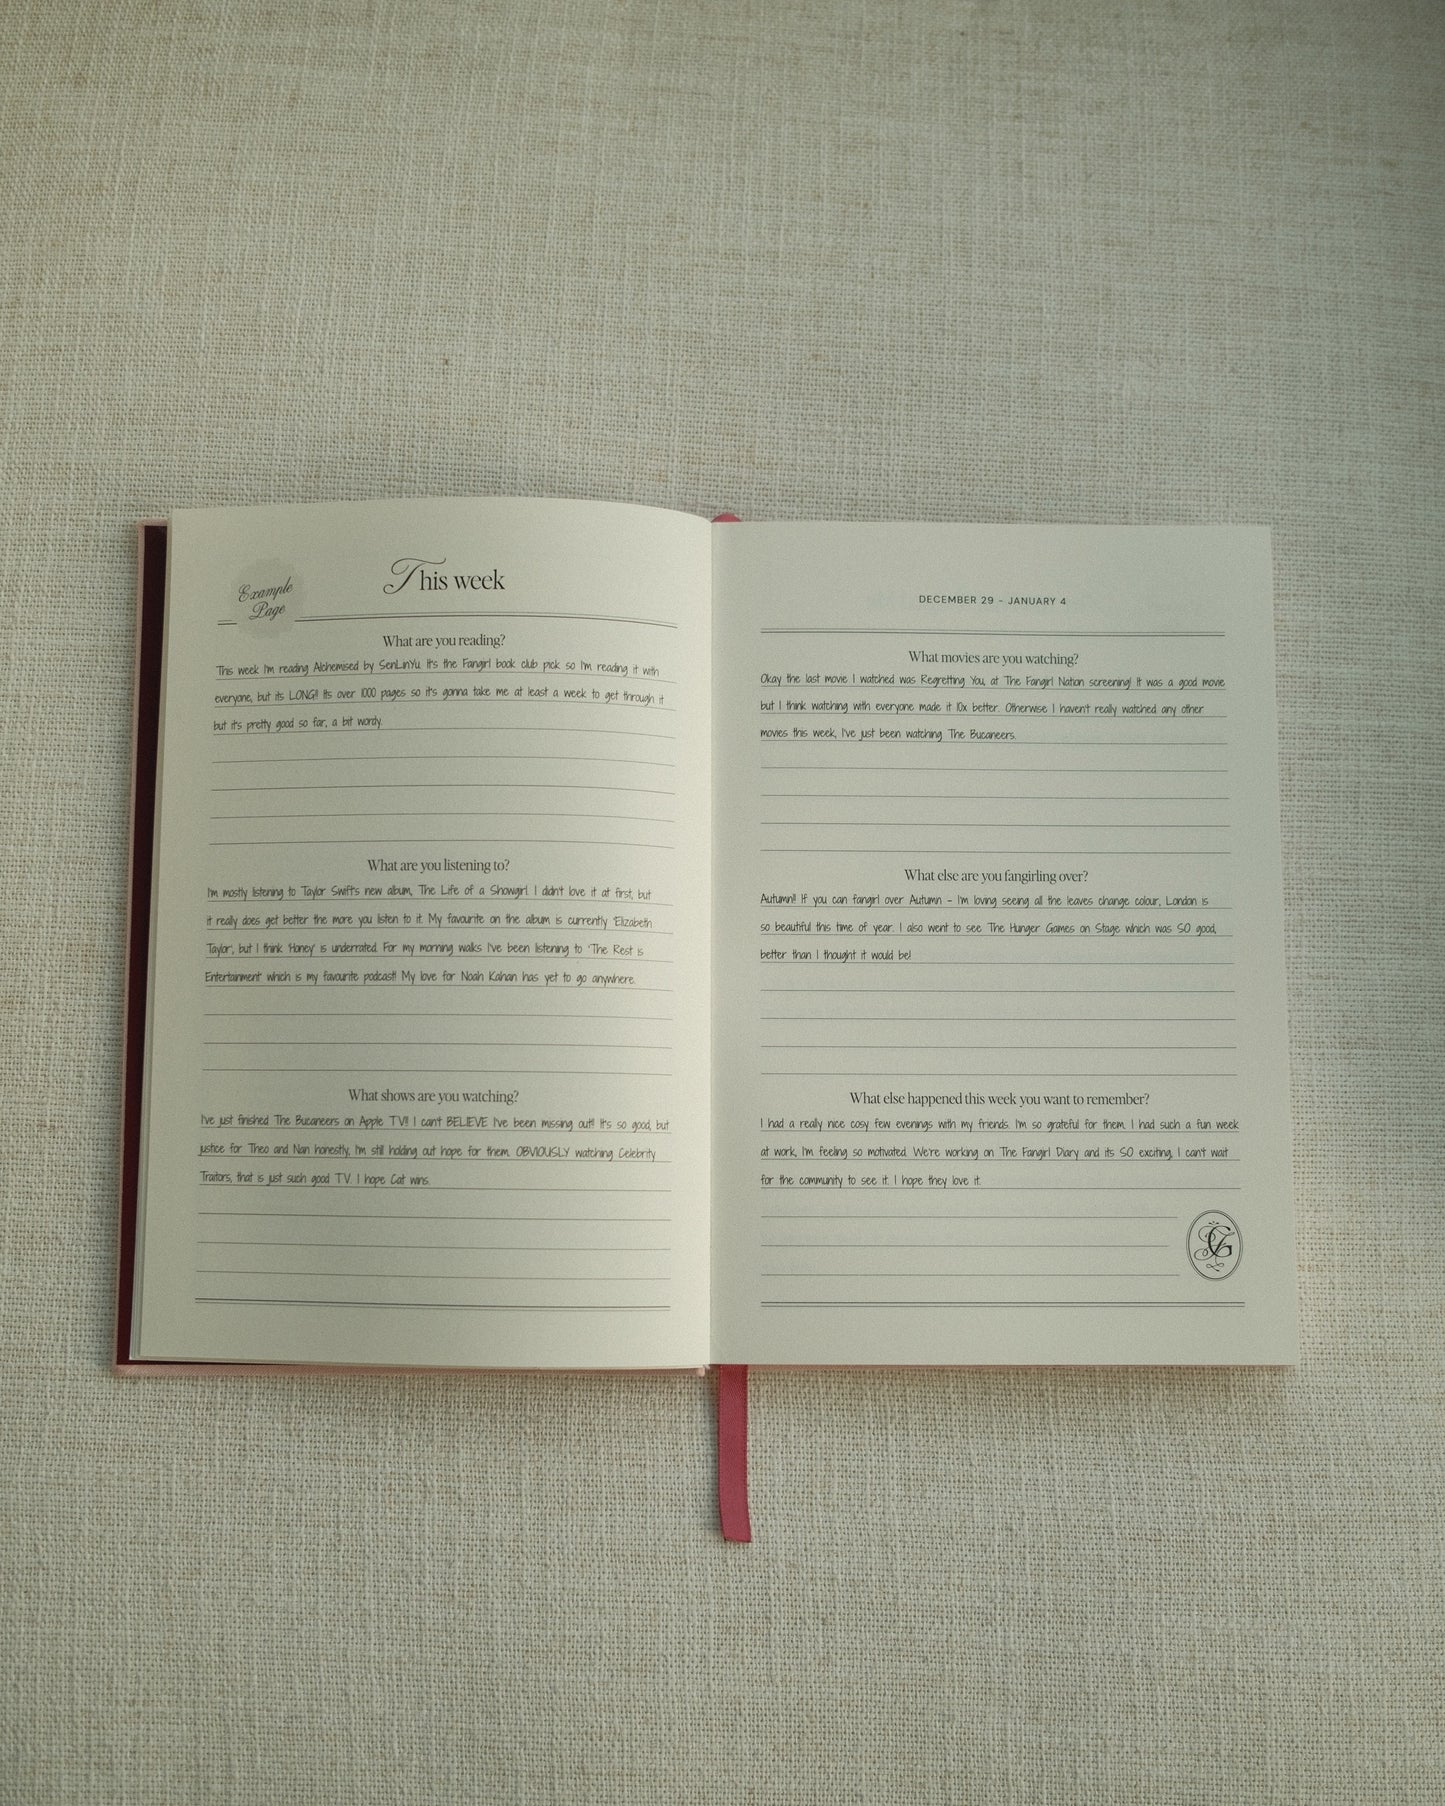 Example
Page
This week
What are you reading?
This week I'm reading Alchemised by SenLinYu. It's the Fangirl book club pick so I'm reading it with
everyone, but its LONG!! Its over 1000 pages so it's gonna take me at least a week to get through it
but it's pretty good so far, a bit wordy.
What are you listening to?
I'm mostly listening to Taylor Swift's new album, The Life of a Showgirl. I didn't love it at first, but
it really does get better the more you listen to it. My favourite on the album is currently 'Elizabeth
Taylor', but I think 'Honey' is underrated. For my morning walks I've been listening to 'The Rest is
Entertainment' which is my favourite podcast!! My love for Noah Kahan has yet to go anywhere.
What shows are you watching?
I've just finished The Bucaneers on Apple TV!! I can't BELIEVE I've been missing out!! It's so good, but
justice for Theo and Nan honestly, I'm still holding out hope for them. OBVIOUSLY watching Celebrity
Traitors, that is just such good TV. I hope Cat wins.
DECEMBER 29 - JANUARY 4
What movies are you watching?
Okay the last movie I watched was Regretting You, at The Fangirl Nation screening! It was a good movie
but I think watching with everyone made it 10x better. Otherwise I haven't really watched any other
movies this week, I've just been watching The Bucaneers.
What else are you fangirling over?
Autumn!! If you can fangirl over Autumn - I'm loving seeing all the leaves change colour, London is
so beautiful this time of year. I also went to see The Hunger Games on Stage which was SO good,
better than I thought it would be!
What else happened this week you want to remember?
I had a really nice cosy few evenings with my friends. I'm so grateful for them. I had such a fun week
at work, I'm feeling so motivated. We're working on The Fangirl Diary and its SO exciting, I can't wait
for the community to see it. I hope they love it.